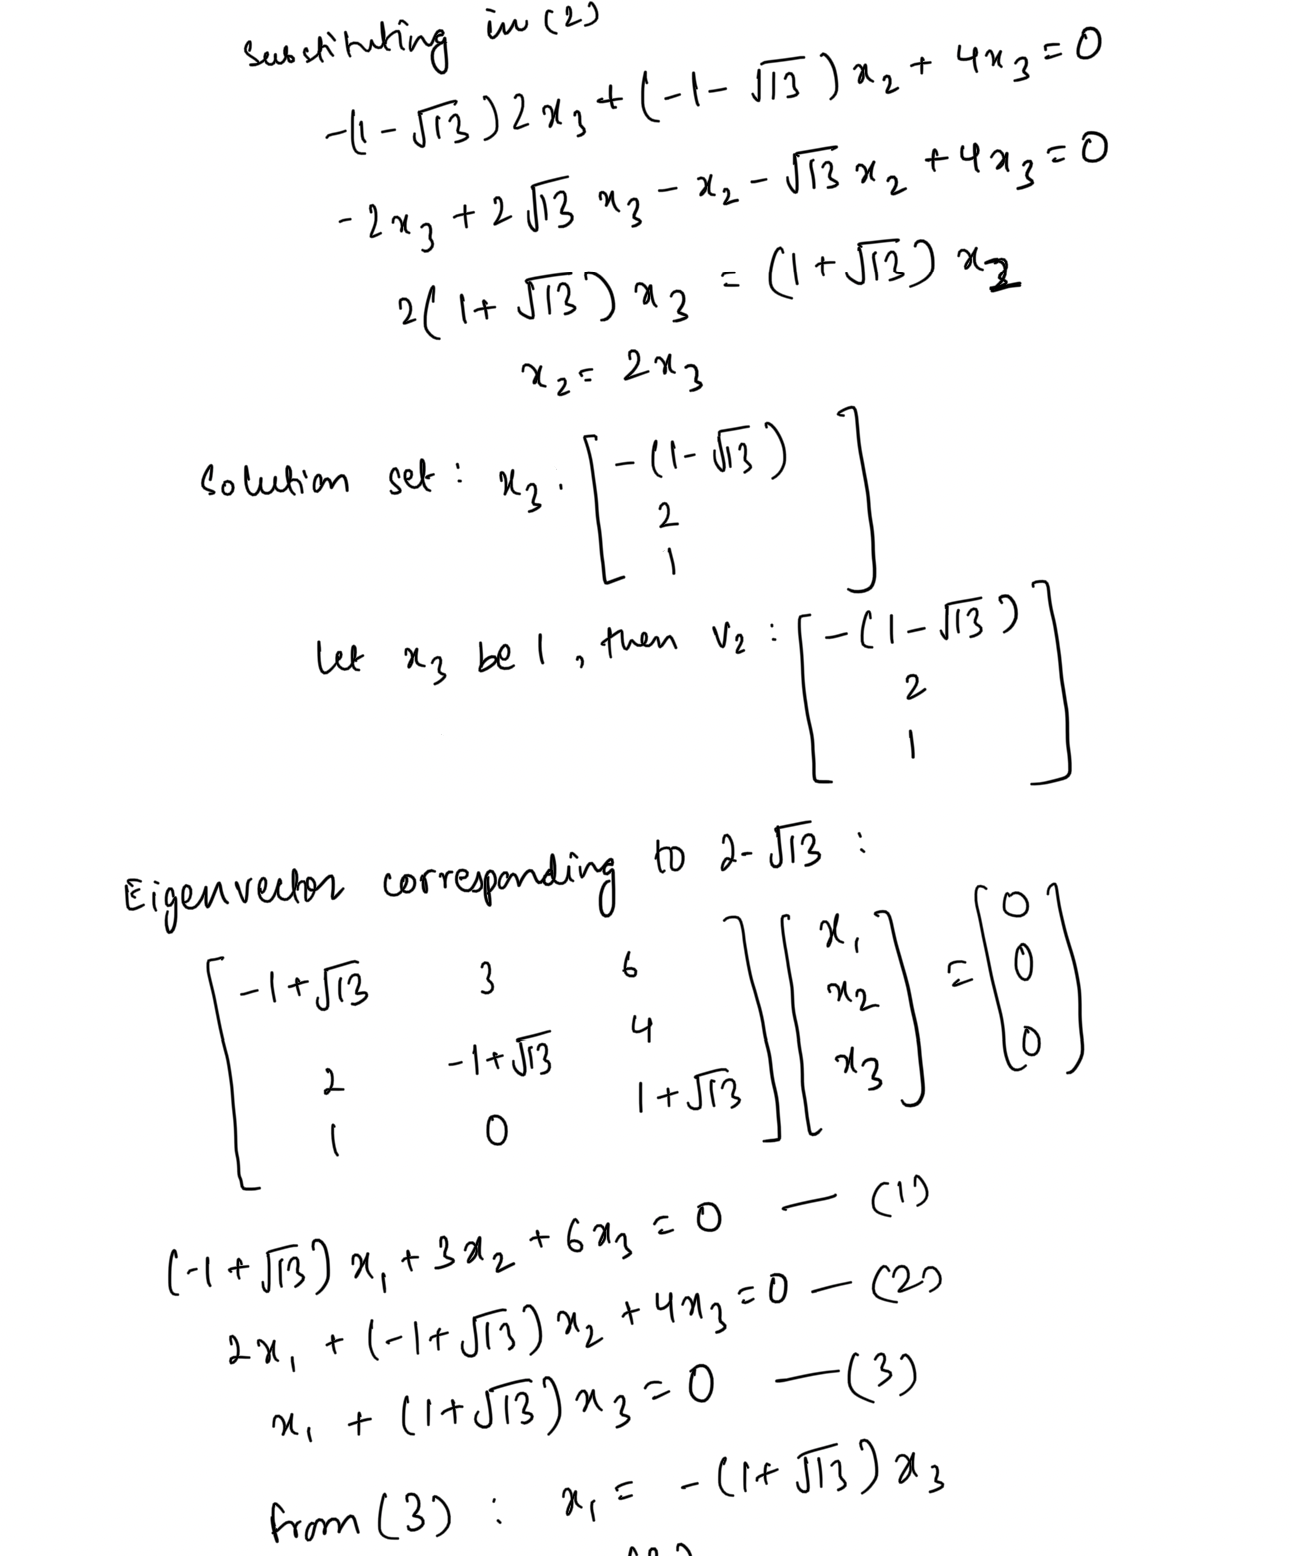 Substituting in (2)
-(1-√13)2x₃+(-1-√13)x₂+4x₃=0
-2x₃+2√13 x₃-x₂-√13 x₂+4x₃=0
2(1+√13)x₃=(1+√13)x₂
x₂=2x₃
Solution set: x₃.[-(1-√13)
2
1]
Let x₃ be 1, then v₂:[-(1-√13)
2
1]
Eigenvector corresponding to 2-√13:
[-1+√13 3 6
2 -1+√13 4
1 0 1+√13] [x₁
x₂
x₃] = [0
0
0]
(-1+√13)x₁+3x₂+6x₃=0 — (1)
2x₁+(-1+√13)x₂+4x₃=0 — (2)
x₁+(1+√13)x₃=0 — (3)
from (3): x₁=-(1+√13)x₃